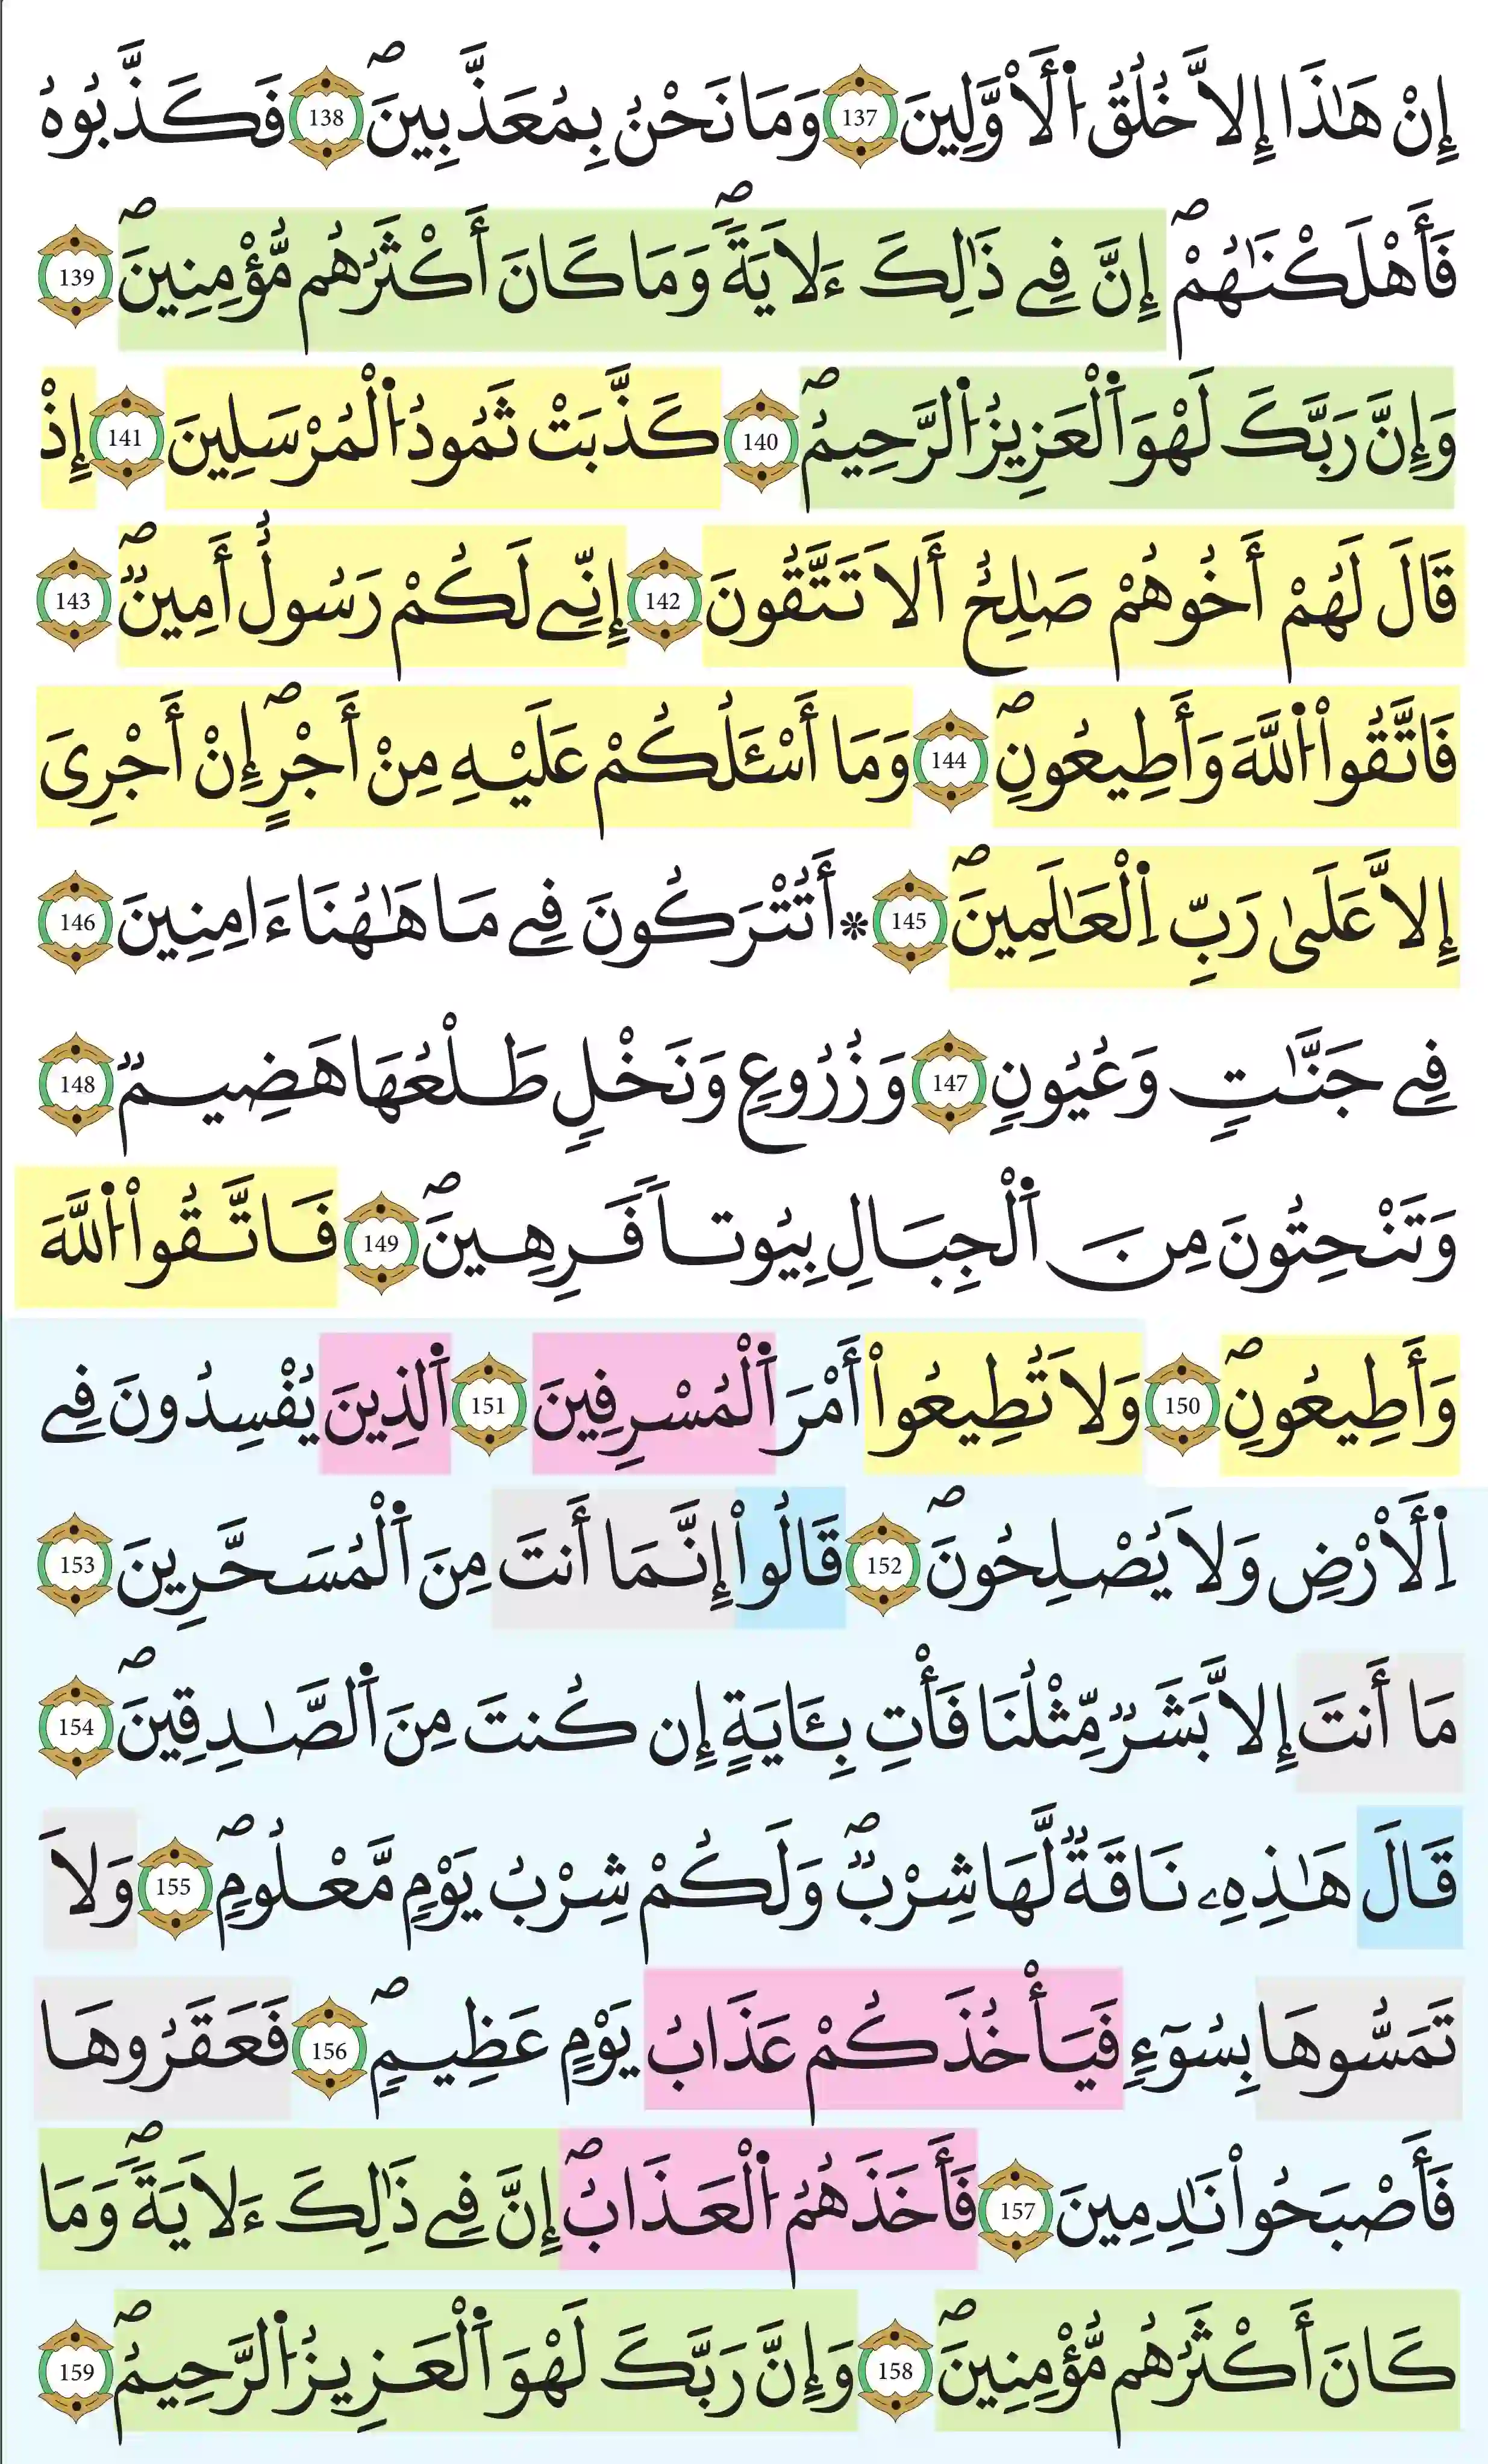 إِنْ هَٰذَا إِلاَّ خُلُقُ اُ۬لَاوَّلِينَ 137 وَمَا نَحْنُ بِمُعَذَّبِينَۖ 138 فَكَذَّبُوهُ
فَأَهْلَكْنَٰهُمْۖ إِنَّ فِے ذَٰلِكَ ءَلَايَةٗۖ وَمَا كَانَ أَكْثَرُهُم مُّؤْمِنِينَۖ 139
وَإِنَّ رَبَّكَ لَهْوَ اَ۬لْعَزِيزُ اُ۬لرَّحِيمُۖ 140 كَذَّبَتْ ثَمُودُ اُ۬لْمُرْسَلِينَ 141 إِذْ
قَالَ لَهُمْ أَخُوهُمْ صَٰلِحٌ أَلَا تَتَّقُونَ 142 إِنِّے لَكُمْ رَسُولٌ أَمِينٞۖ 143
فَاتَّقُواْ اُ۬للَّهَ وَأَطِيعُونِۖ 144 وَمَا أَسْـَٔلُكُمْ عَلَيْهِ مِنْ أَجْرٍۖ إِنْ أَجْرِىَ
إِلاَّ عَلَىٰ رَبِّ اِ۬لْعَٰلَمِينَۖ 145 ۞ أَتُتْرَكُونَ فِے مَا هَٰهُنَا ءَامِنِينَ 146
فِے جَنَّٰتٖ وَعُيُونٖ 147 وَزُرُوعٖ وَنَخْلٖ طَلْعُهَا هَضِيمٞ 148
وَتَنْحِتُونَ مِنَ اَ۬لْجِبَالِ بِيُوتاٗ فَرِهِينَۖ 149 فَاتَّقُواْ اُ۬للَّهَ
وَأَطِيعُونِۖ 150 وَلَا تُطِيعُواْ أَمْرَ اَ۬لْمُسْرِفِينَ 151 اَ۬لذِينَ يُفْسِدُونَ فِے
اِ۬لَارْضِ وَلَا يُصْلِحُونَۖ 152 قَالُواْ إِنَّمَا أَنتَ مِنَ اَ۬لْمُسَحَّرِينَ 153
مَا أَنتَ إِلاَّ بَشَرٞ مِّثْلُنَا فَأْتِ بِـَٔايَةٍ إِن كُنتَ مِنَ اَ۬لصَّٰدِقِينَۖ 154
قَالَ هَٰذِهِۦ نَاقَةٞ لَّهَا شِرْبٞۖ وَلَكُمْ شِرْبُ يَوْمٖ مَّعْلُومٖۖ 155 وَلَا
تَمَسُّوهَا بِسُوٓءٖ فَيَأْخُذَكُمْ عَذَابُ يَوْمٍ عَظِيمٖۖ 156 فَعَقَرُوهَا
فَأَصْبَحُواْ نَٰدِمِينَ 157 فَأَخَذَهُمُ اُ۬لْعَذَابُۖ إِنَّ فِے ذَٰلِكَ ءَلَايَةٗۖ وَمَا
كَانَ أَكْثَرُهُم مُّؤْمِنِينَۖ 158 وَإِنَّ رَبَّكَ لَهْوَ اَ۬لْعَزِيزُ اُ۬لرَّحِيمُۖ 159